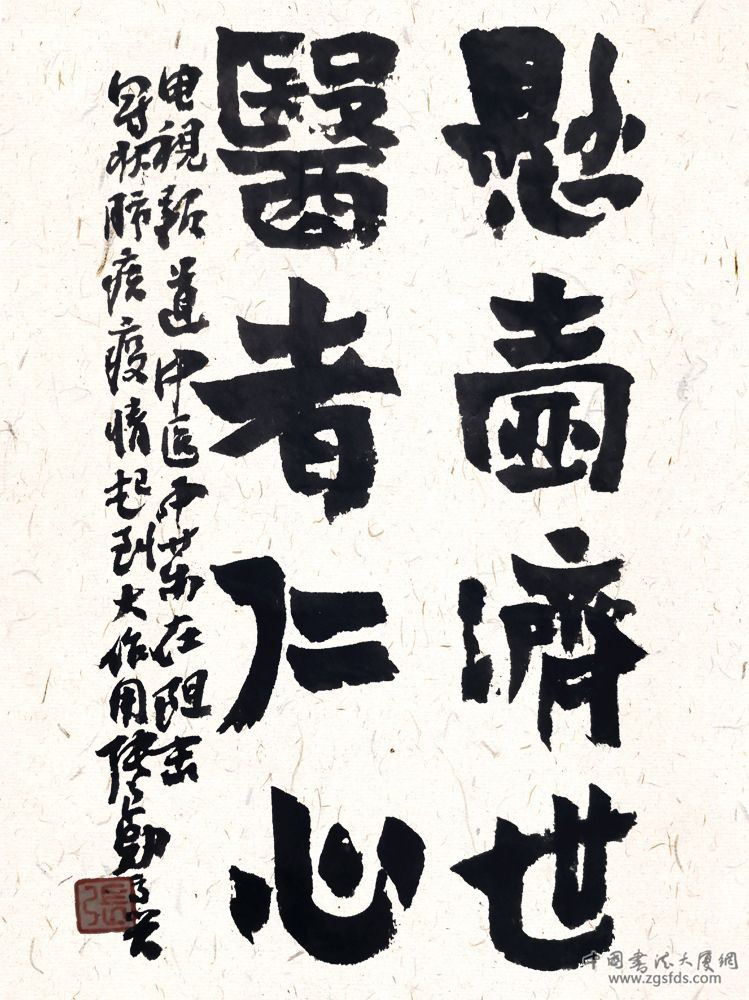 懸壺濟世
醫者仁心
电視報道中医中药在阻击
冠状肺疾疫情起到大作用張勤
張
中國書法大厦網
www.zgsfds.com